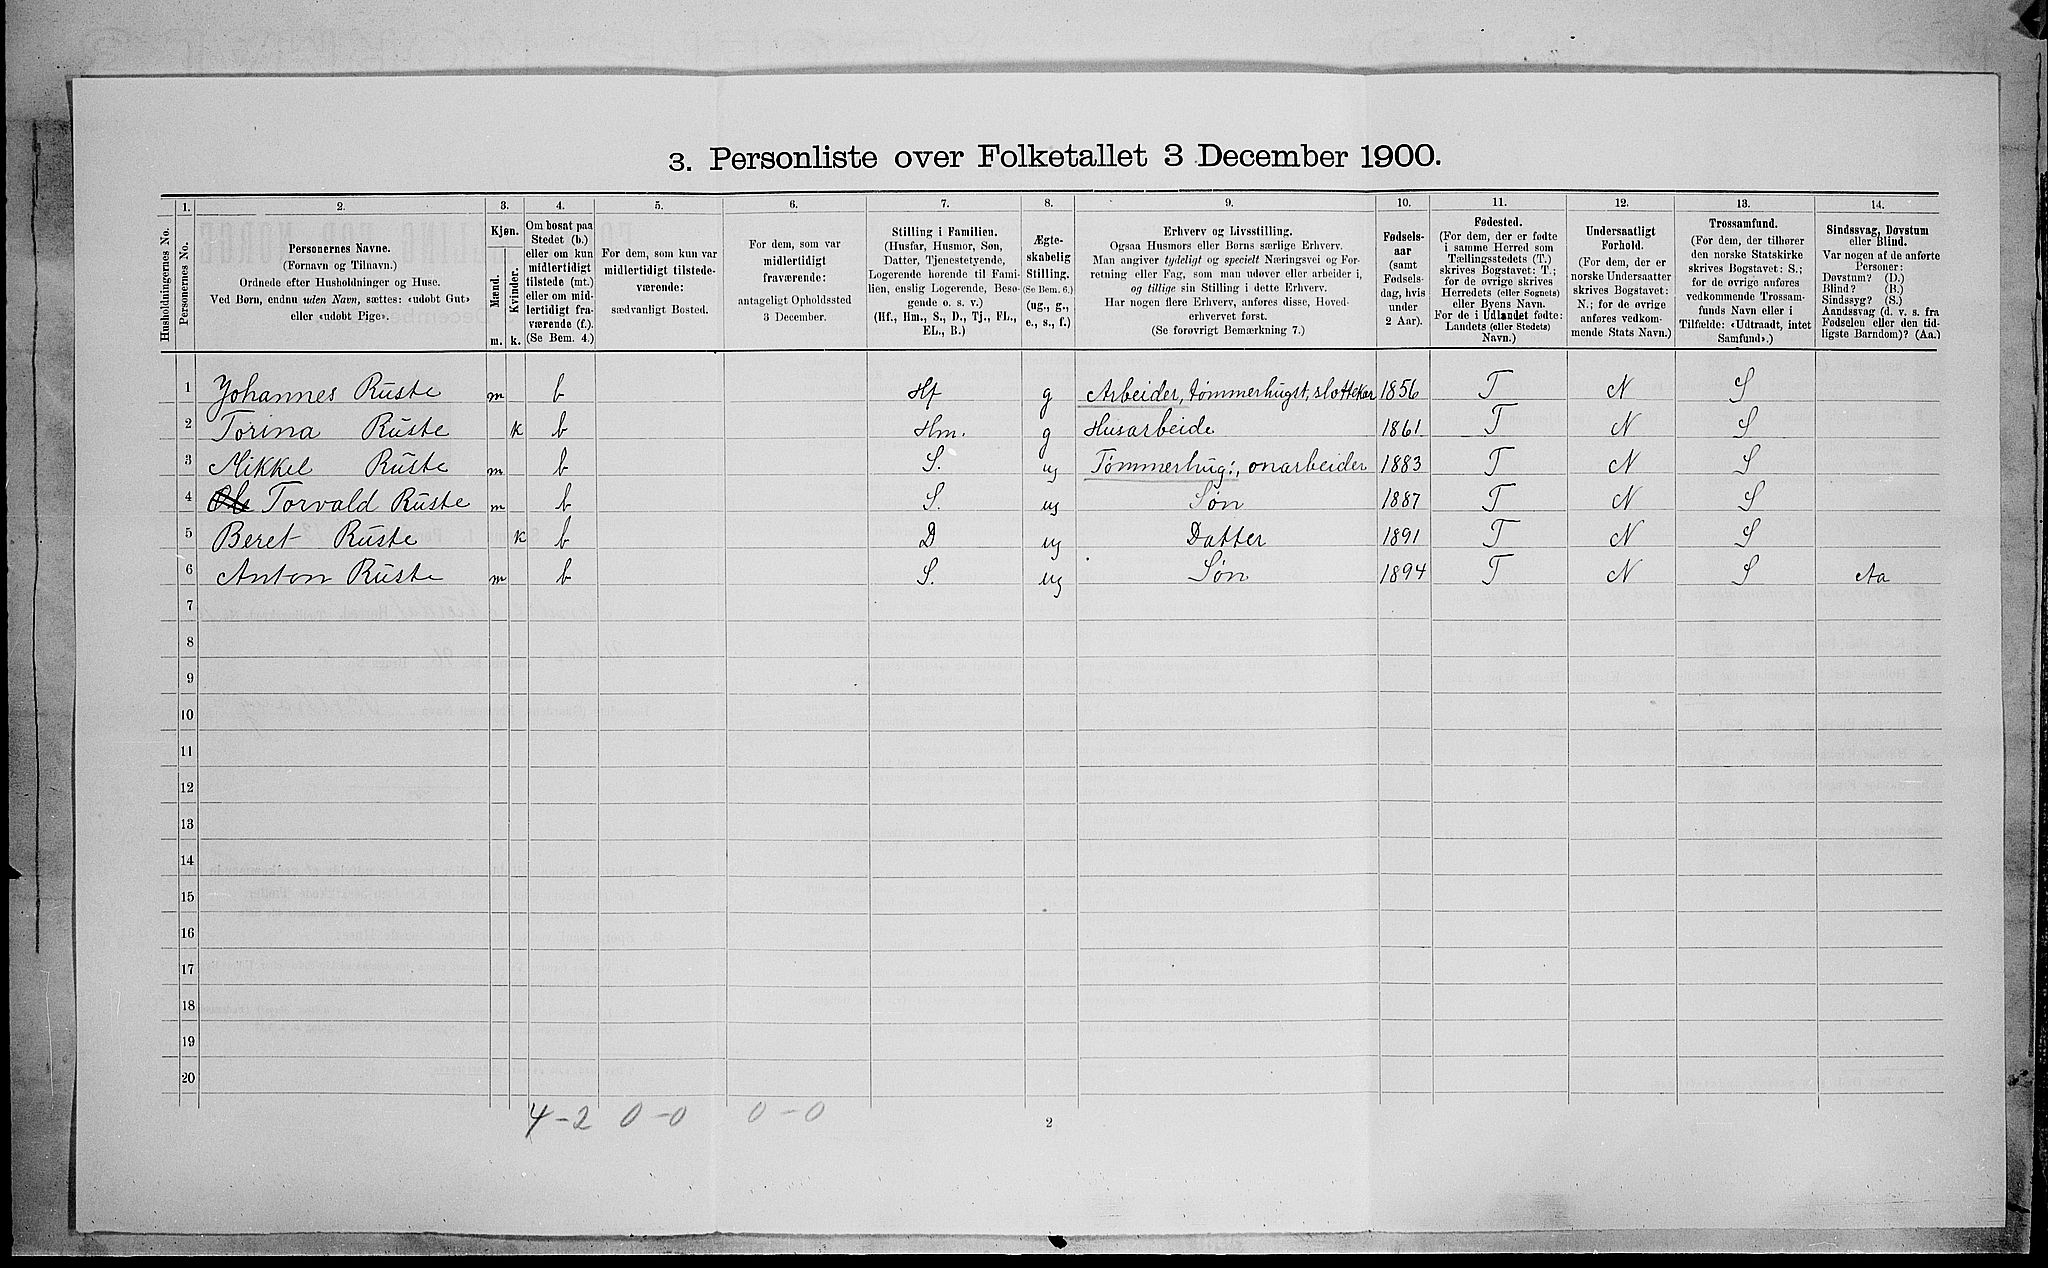 3. Personliste over Folketallet 3 December 1900.
1. 2. 3. 4. 5. 6. 7. 8. 9. 10. 11. 12. 13. 14.
Husholdningernes No.
Personernes No.
Personernes Navne.
(Fornavn og Tilnavn.)
Ordnede efter Husholdninger og Huse.
Ved Børn, endnu uden Navn, sættes: «udøbt Gut»
eller «udøbt Pige».
Kjøn.
Mænd.
Kvinder.
m. k.
Om bosat paa
Stedet (b.)
eller om kun
midlertidigt
tilstede (mt.)
eller om mid-
lertidigt fra-
værende (f.).
(Se Bem. 4.)
For dem, som kun var
midlertidigt tilstede-
værende:
sædvanligt Bosted.
For dem, som var
midlertidigt
fraværende:
antageligt Opholdssted
3 December.
Stilling i Familien.
(Husfar, Husmor, Søn,
Datter, Tjenestetyende,
Logerende hørende til Fami-
lien, enslig Logerende, Besø-
gende o. s. v.)
(Hf., Hm., S., D., Tj., FL.,
EL., B.)
Ægte-
skabelig
Stilling.
(Se Bem. 6.)
(ug., g.,
e., s., f.)
Erhverv og Livsstilling.
Ogsaa Husmors eller Børns særlige Erhverv.
Man angiver tydeligt og specielt Næringsvei og For-
retning eller Fag, som man udøver eller arbeider i,
og tillige sin Stilling i dette Erhverv.
Har nogen flere Erhverv, anføres disse, Hoved-
erhvervet først.
(Se forøvrigt Bemærkning 7.)
Fødsels-
aar
(samt
Fødsels-
dag, hvis
under
2 Aar).
Fødested.
(For dem, der er fødte
i samme Herred som
Tællingsstedets (T.)
skrives Bogstavet: T.;
for de øvrige skrives
Herredets (eller Sognets)
eller Byens Navn.
For de i Udlandet fødte:
Landets (eller Stedets)
Navn.)
Undersaatligt
Forhold.
(For dem, der er
norske Undersaatter
skrives Bogstavet:
N.; for de øvrige
anføres vedkom-
mende Stats Navn.)
Trossamfund.
(For dem, der tilhører
den norske Statskirke
skrives Bogstavet: S.;
for de øvrige anføres
vedkommende Trossam-
funds Navn eller i
Tilfælde: «Udtraadt, intet
Samfund».)
Sindssvag, Døvstum
eller Blind.
Var nogen af de anførte
Personer:
Døvstum? (D.)
Blind? (B.)
Sindssyg? (S.)
Aandssvag (d. v. s. fra
Fødselen eller den tid-
ligste Barndom)? (Aa.)
1 Johannes Ruste m b Hf g Arbeider, tømmerhugst, slottekar 1856 T N S
2 Torina Ruste k b Hm. g Husarbeide 1861 T N S
3 Mikkel Ruste m b S. ug Tømmerhug:, onarbeider 1883 T N S
4 Torvald Ruste m b S. ug Søn 1887 T N S
5 Beret Ruste k b D ug Datter 1891 T N S
6 Anton Ruste m b S. ug Søn 1894 T N S Aa
7
8
9
10
11
12
13
14
15
16
17
18
19
20
4-2 0-0 0-0
2